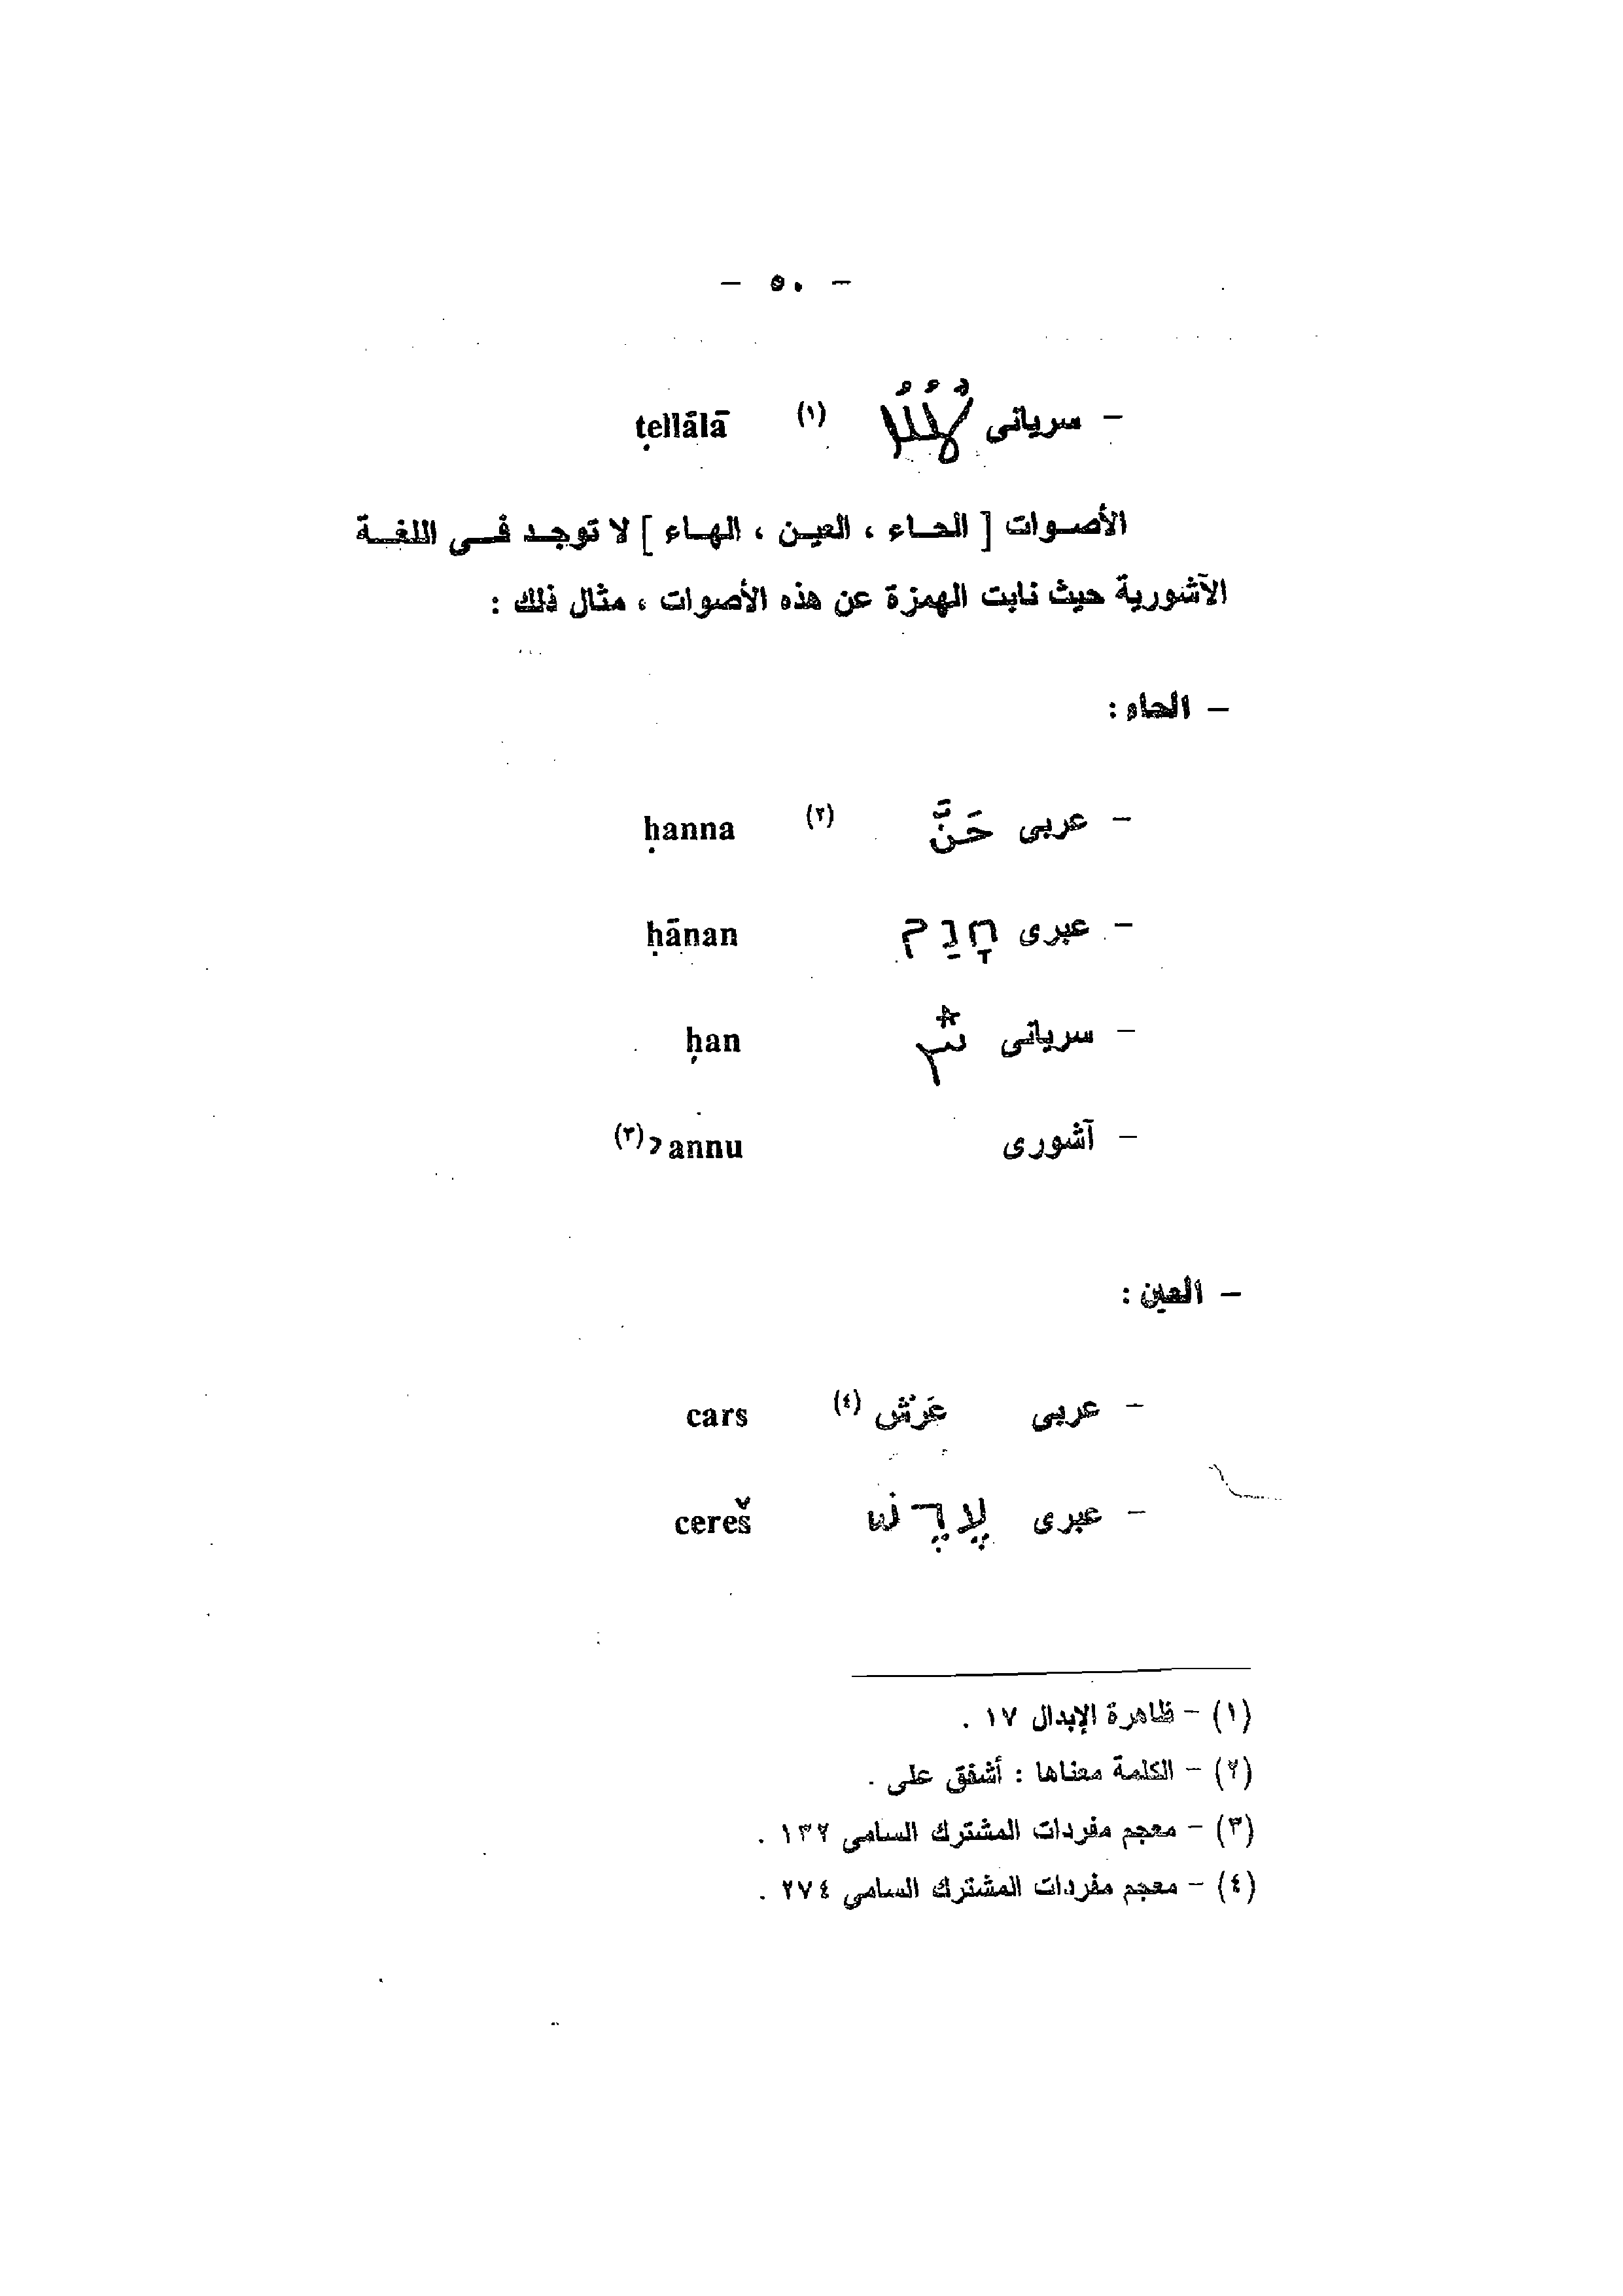 - ٥٠ -
- سرياني ܛܠܠܐ (١) ṭellālā
الأصوات [ الحاء ، العين ، الهاء ] لا توجد فى اللغة
الآشورية حيث نابت الهمزة عن هذه الأصوات ، مثال ذلك :
- الحاء :
- عربى حَنَّ (٢) ḥanna
- عبرى ḥānan
- سريانى ḥan
- آشورى ʾannu (٣)
- العين :
- عربى عَرْش (٤) cars
- عبرى עֶרֶשׁ cereš
(١) - ظاهرة الإبدال ١٧ .
(٢) - الكلمة معناها : أشفق على .
(٣) - معجم مفردات المشترك السامى ١٣٢ .
(٤) - معجم مفردات المشترك السامى ٢٧٤ .